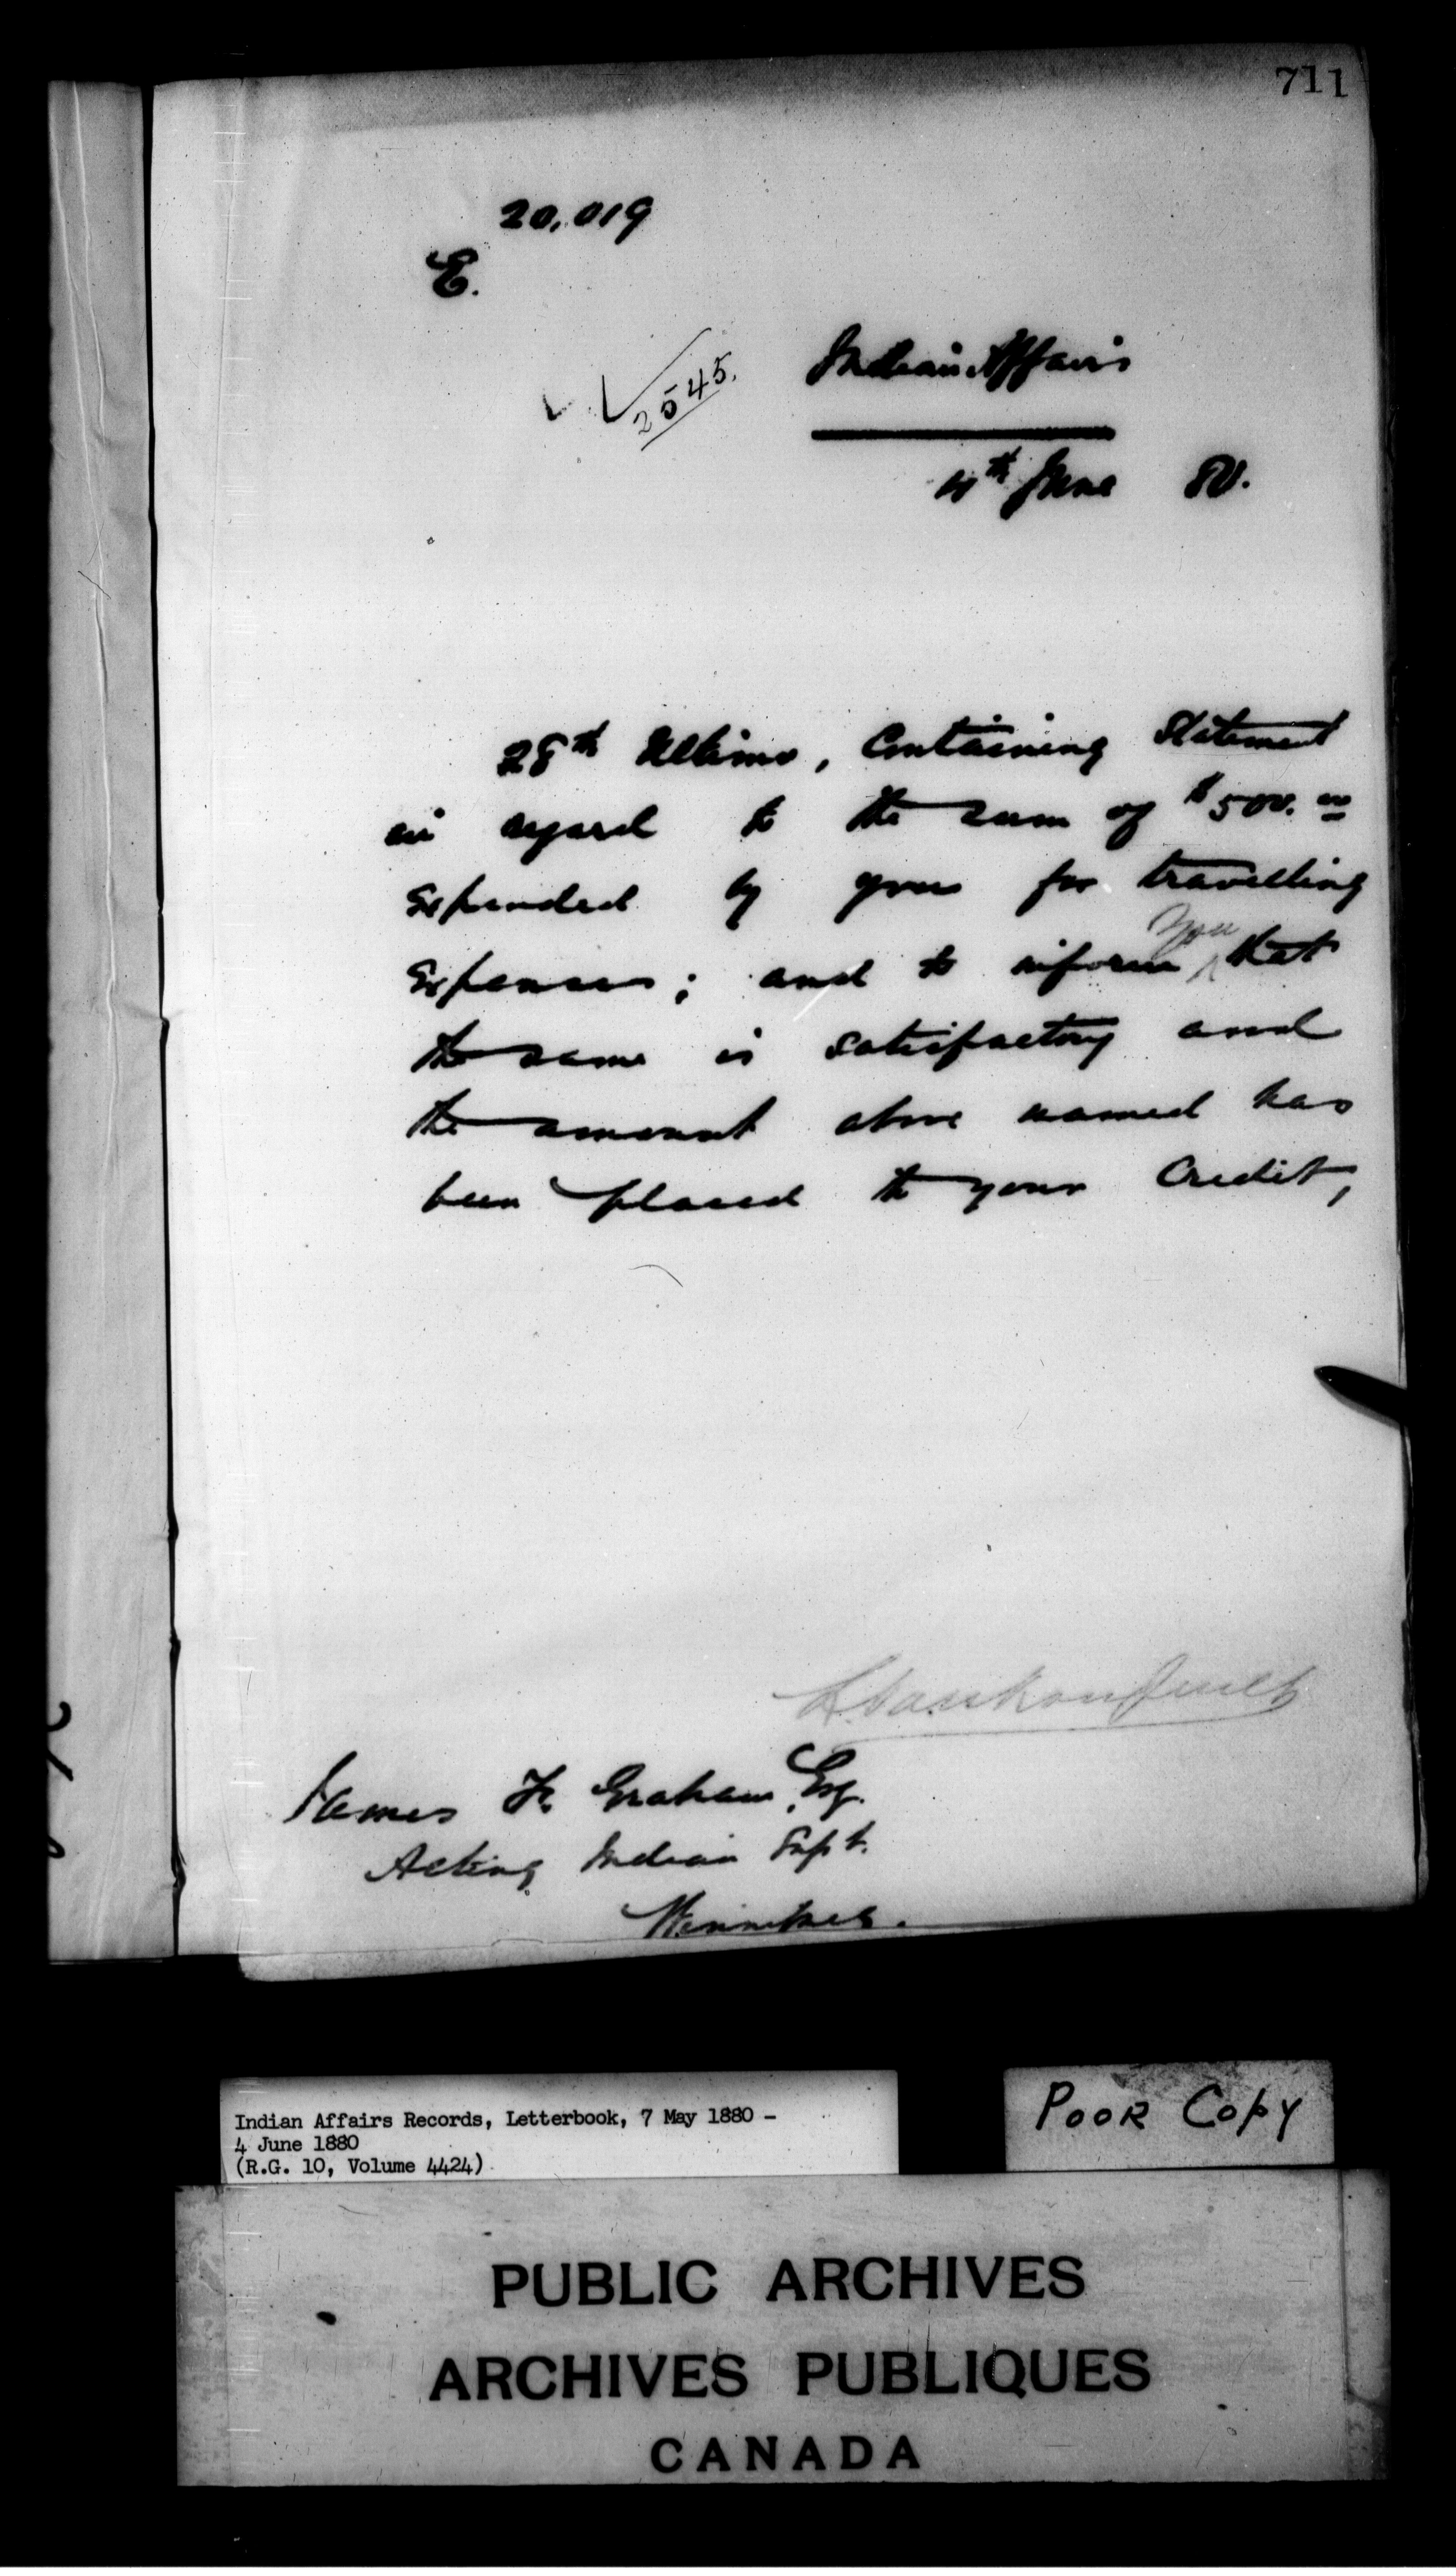 711
20,019
E.
2545.
Indian Affairs
4th June 80.
28th Ultimo, Containing Statement
in regard to the sum of $500.00
Expended by you for travelling
Expenses; and to inform you that
the same is satisfactory and
the amount above named has
been placed to your Credit,
L. Vankoughnet
James F. Graham, Esq.
Acting Indian Supt.
Winnipeg.
Indian Affairs Records, Letterbook, 7 May 1880 –
4 June 1880
(R.G. 10, Volume 4424)
POOR COPY
PUBLIC ARCHIVES
ARCHIVES PUBLIQUES
CANADA